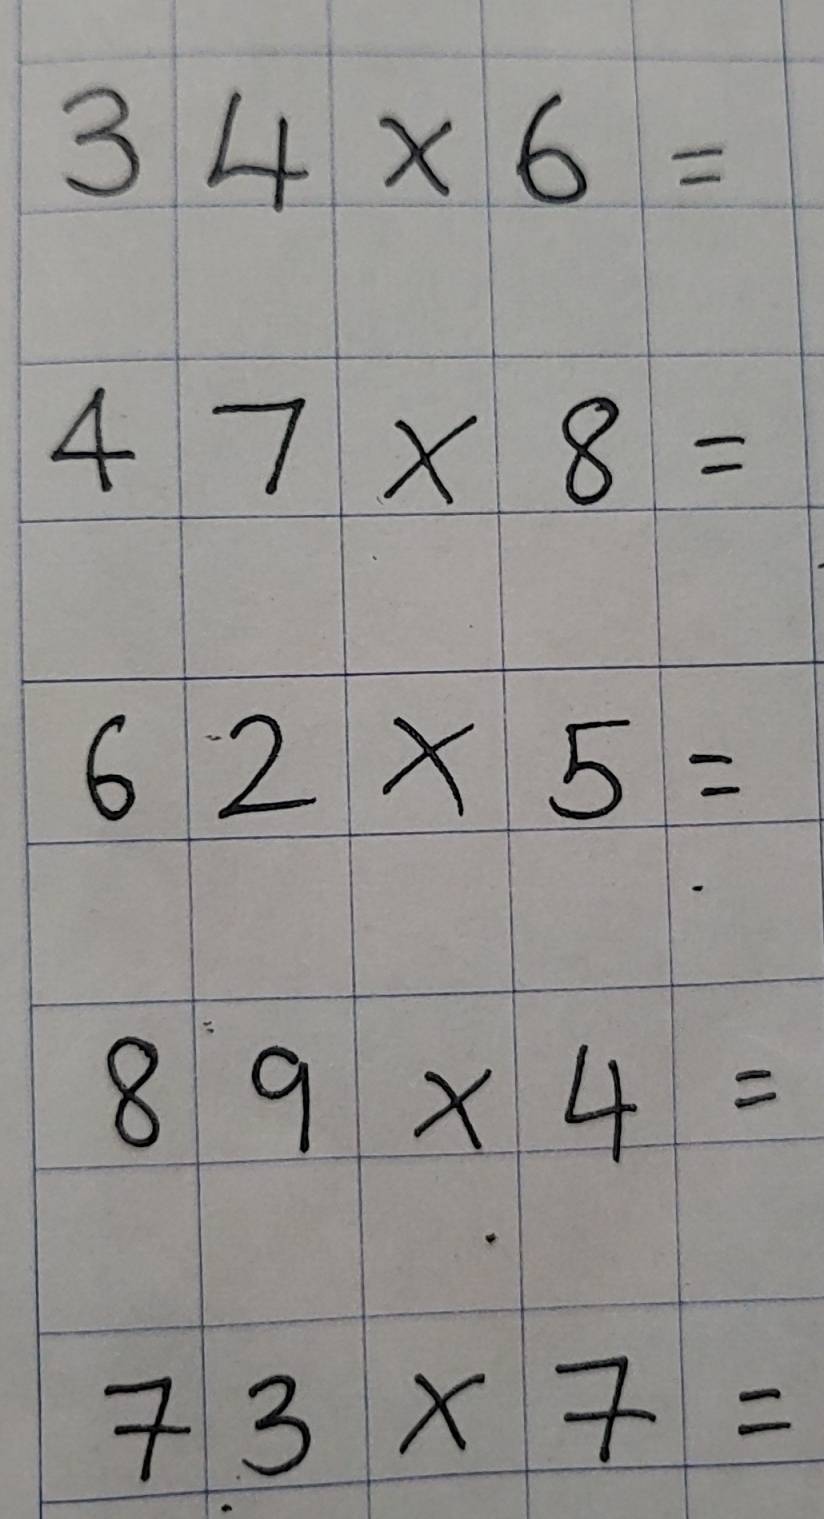 34×6=
47×8=
62×5=
89×4=
73×7=